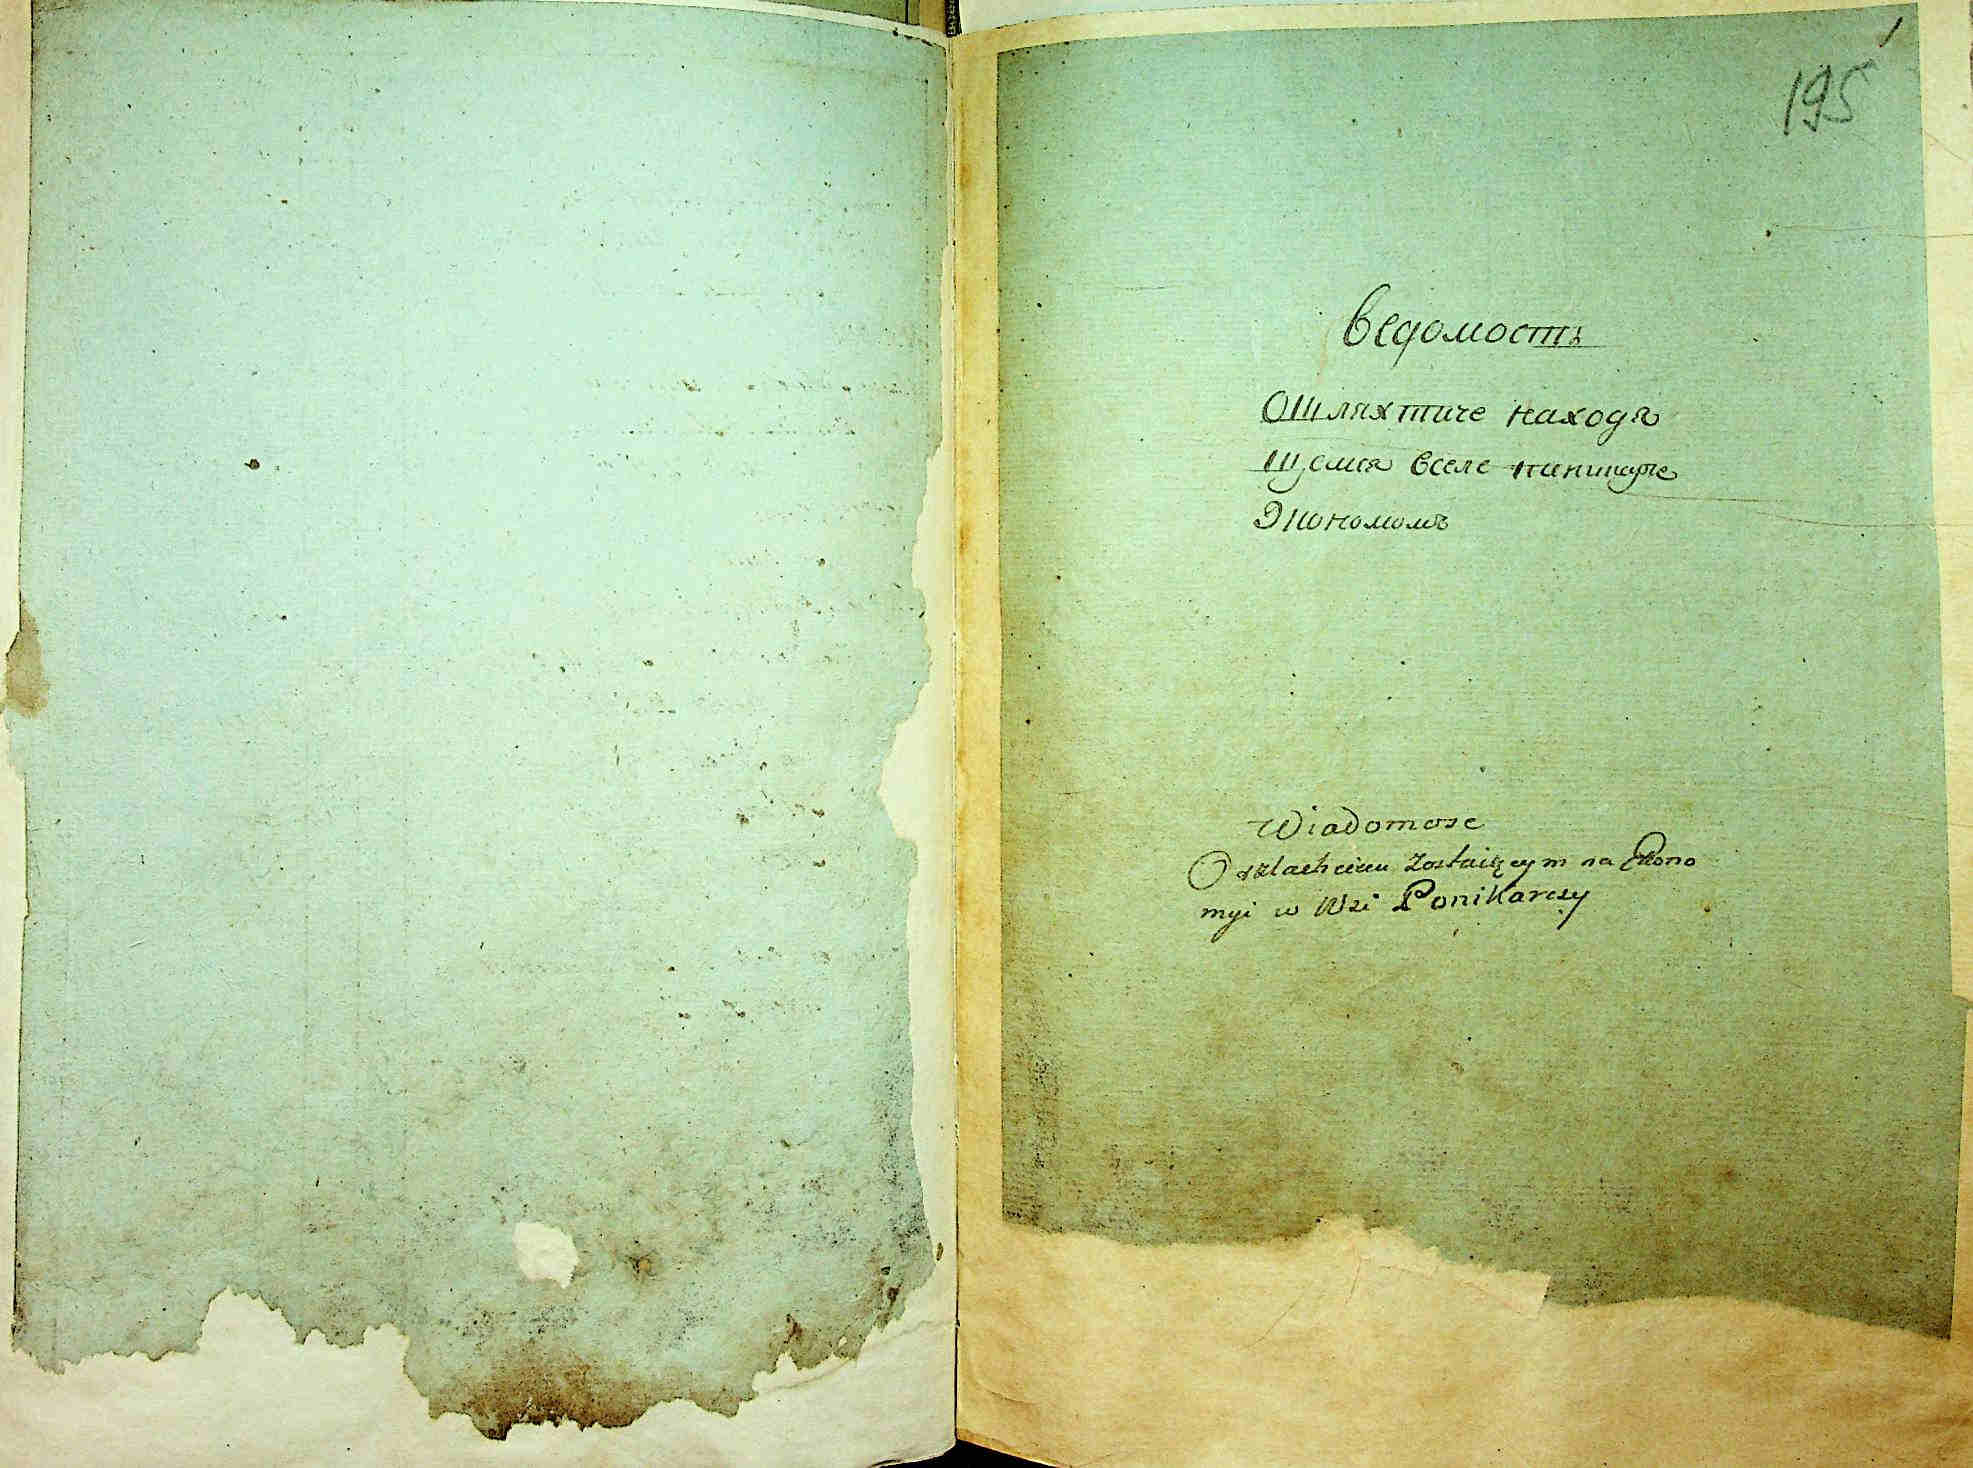 195
Ведомость
Ошляхтиче находя
щемся вселе
Экономомъ
Wiadomosc
O szlachcicu zostaiącym na Ekono
myi w Wsi Ponikarczy